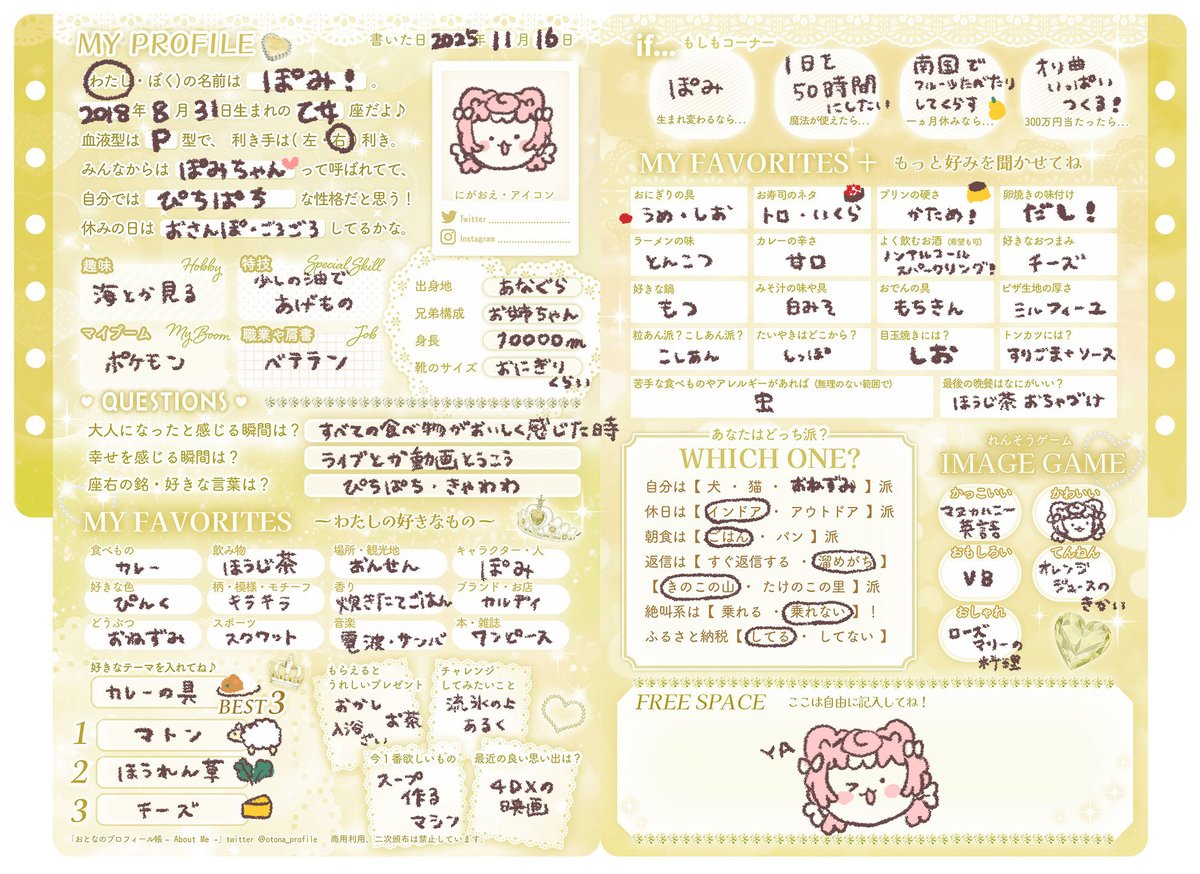 MY PROFILE
書いた日 2025年 11月 16日
(わたし・ぼく)の名前は ぽみ! 。
2018年 8月 31日生まれの 乙女 座だよ♪
血液型は P 型で、 利き手は(左・右)利き。
みんなからは ぽみちゃん って呼ばれてて、
自分では ぴちぱち な性格だと思う!
休みの日は おさんぽ・ごろごろ してるかな。
にがおえ・アイコン
Twitter
Instagram
趣味 Hobby
海とか見る
特技 Special Skill
少しの油で
あげもの
マイブーム My Boom
ポケモン
職業や肩書 Job
ベテラン
出身地 あなぐら
兄弟構成 お姉ちゃん
身長 10000m
靴のサイズ おにぎり
くらい
QUESTIONS
大人になったと感じる瞬間は? すべての食べ物がおいしく感じた時
幸せを感じる瞬間は? ライブとか動画とうこう
座右の銘・好きな言葉は? ぴちぱち・きゃわわ
MY FAVORITES ～わたしの好きなもの～
食べもの カレー
飲み物 ほうじ茶
場所・観光地 おんせん
キャラクター・人 ぽみ
好きな色 ぴんく
柄・模様・モチーフ キラキラ
香り 炊きたてごはん
ブランド・お店 カルディ
どうぶつ おねずみ
スポーツ スクワット
音楽 電波・サンバ
本・雑誌 ワンピース
好きなテーマを入れてね♪
カレーの具
BEST3
1 マトン
2 ほうれん草
3 チーズ
もらえると
うれしいプレゼント
おかし
お茶
入浴
ざい
チャレンジ
してみたいこと
流氷の上
あるく
今1番欲しいもの
スープ
作る
マシン
最近の良い思い出は?
4DXの
映画
「おとなのプロフィール帳 - About Me -」twitter @otona_profile 商用利用、二次頒布は禁止しています。
if... もしもコーナー
ぽみ
生まれ変わるなら…
1日を
50時間
にしたい
魔法が使えたら…
南国で
フルーツたべたり
してくらす
一ヵ月休みなら…
オリ曲
いっぱい
つくる!
300万円当たったら…
MY FAVORITES + もっと好みを聞かせてね
おにぎりの具 うめ・しお
お寿司のネタ トロ・いくら
プリンの硬さ かため!
卵焼きの味付け だし!
ラーメンの味 とんこつ
カレーの辛さ 甘口
よく飲むお酒 (希望も可) ノンアルコール
スパークリング!!
好きなおつまみ チーズ
好きな鍋 もつ
みそ汁の味や具 白みそ
おでんの具 もちきん
ピザ生地の厚さ ミルフィーユ
粒あん派?こしあん派? こしあん
たいやきはどこから? しっぽ
目玉焼きには? しお
トンカツには? すりごま+ソース
苦手な食べものやアレルギーがあれば (無理のない範囲で)
虫
最後の晩餐はなにがいい?
ほうじ茶 おちゃづけ
あなたはどっち派?
WHICH ONE?
自分は【 犬 ・ 猫 ・ おねずみ 】派
休日は【 インドア ・ アウトドア 】派
朝食は【 ごはん ・ パン 】派
返信は【 すぐ返信する ・ 溜めがち 】
【 きのこの山 ・ たけのこの里 】派
絶叫系は【 乗れる ・ 乗れない 】!
ふるさと納税【 してる ・ してない 】
れんそうゲーム
IMAGE GAME
かっこいい
マヌカハニー
英語
かわいい
おもしろい
VB
てんねん
オレンジ
ジュースの
きかい
おしゃれ
ローズ
マリーの
料理
FREE SPACE ここは自由に記入してね!
YA